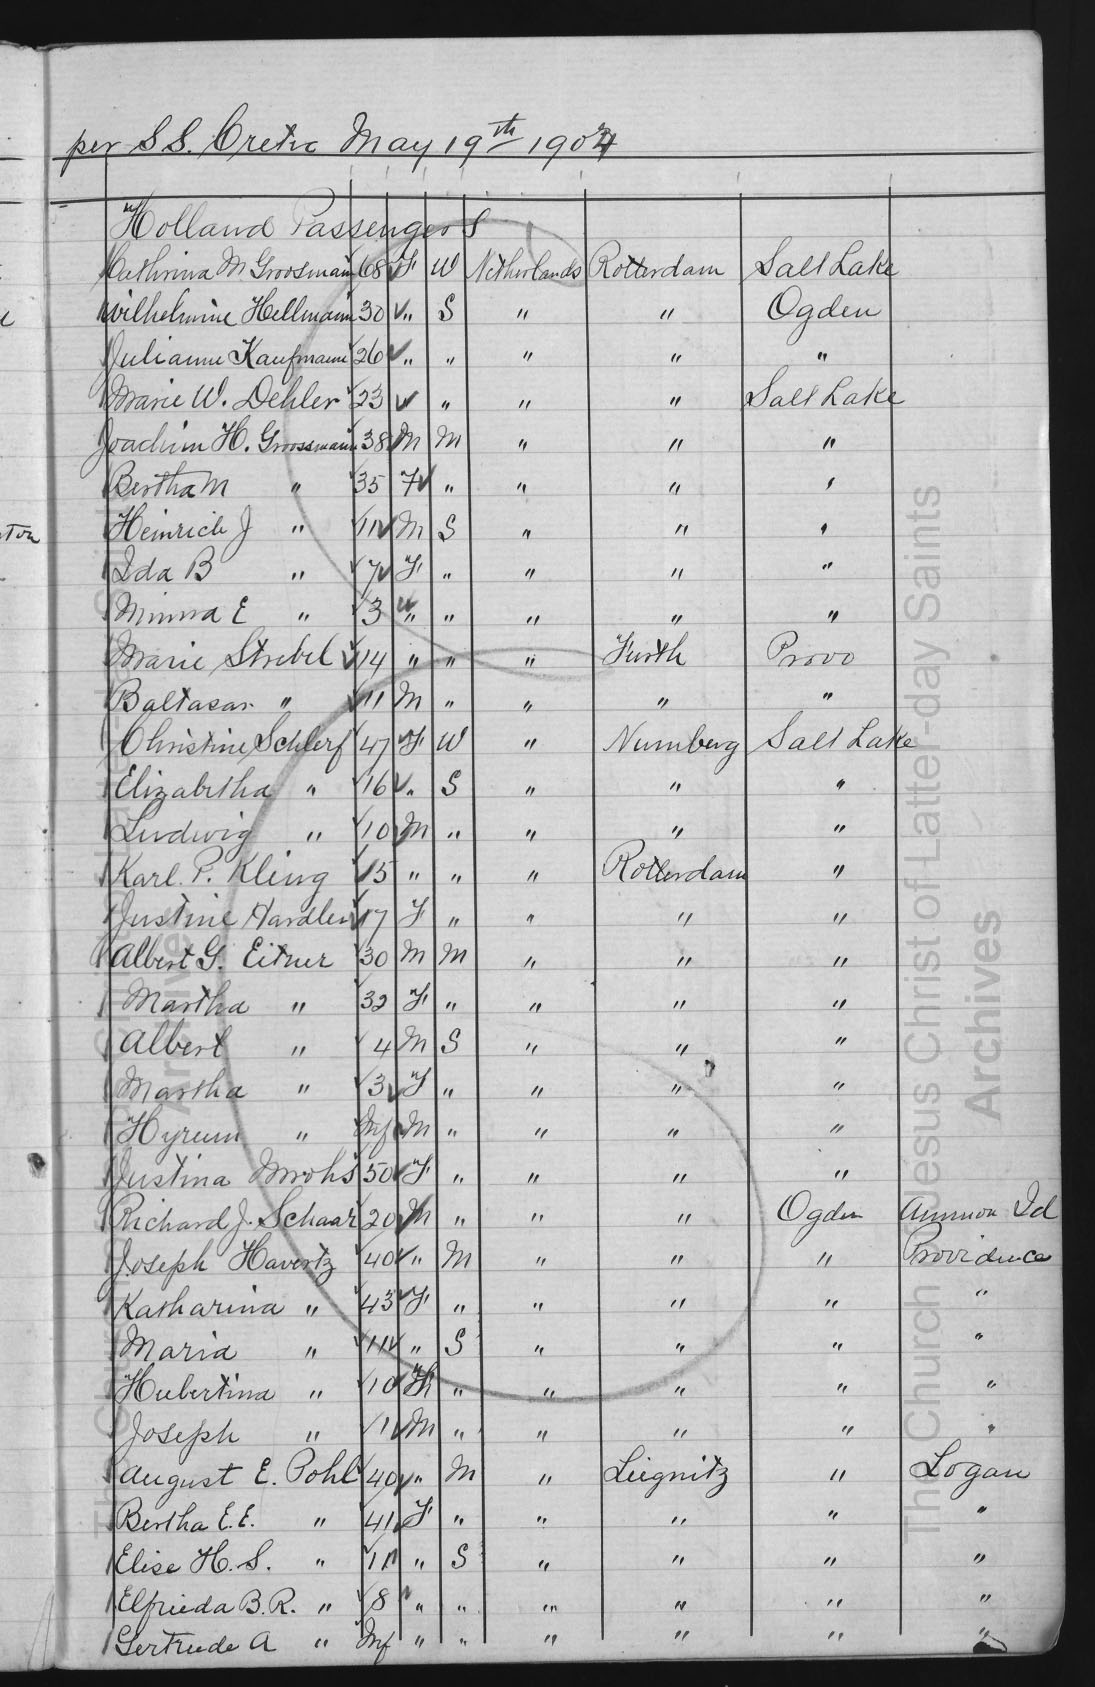 per S S. Cretic May 19th 1904
Holland Passengers
Kathrina M Groosmann 68 F W Netherlands Rotterdam Salt Lake
Wilhelmine Hellmann 30 " S " " Ogden
Julianne Kaufmann 26 " " " " "
Marie W. Dehler 23 " " " Salt Lake
Joachim H. Groossmann 38 M M " " "
Bertha M " 35 F " " " "
Heinrich J " 11 M S " " "
Ida B " 7 F " " " "
Minna E " 3 " " " " "
Marie Strebel 14 " " " Furth Provo
Baltasar " 11 M " " " "
Christine Schlerf 47 F W " Nurnberg Salt Lake
Elizabetha " 16 " S " " "
Ludwig " 10 M " " " "
Karl. P. Kling 15 " " " Rotterdam "
Justine Hardler 17 F " " " "
Albert G. Eitner 30 M M " " "
Martha " 32 F " " " "
Albert " 4 M S " " "
Martha " 3 F " " " "
Hyrum " Inf M " " " "
Justina Mrohs 50 F " " " "
Richard J. Schaar 20 M " " " Ogden Ammon Id
Joseph Havertz 40 " M " " " Providence
Katharina " 43 F " " " " "
Maria " 11 " S " " " "
Hubertina " 10 F " " " " "
Joseph " 1 M " " " " "
August E. Pohl 40 " M " Liegnitz " Logan
Bertha E.E. " 41 F " " " " "
Elise H. S. " 11 " S " " " "
Elfrieda B.R. " 8 " " " " " "
Gertrude A " Inf " " " " " "
The Church of Jesus Christ of Latter-day Saints
Archives